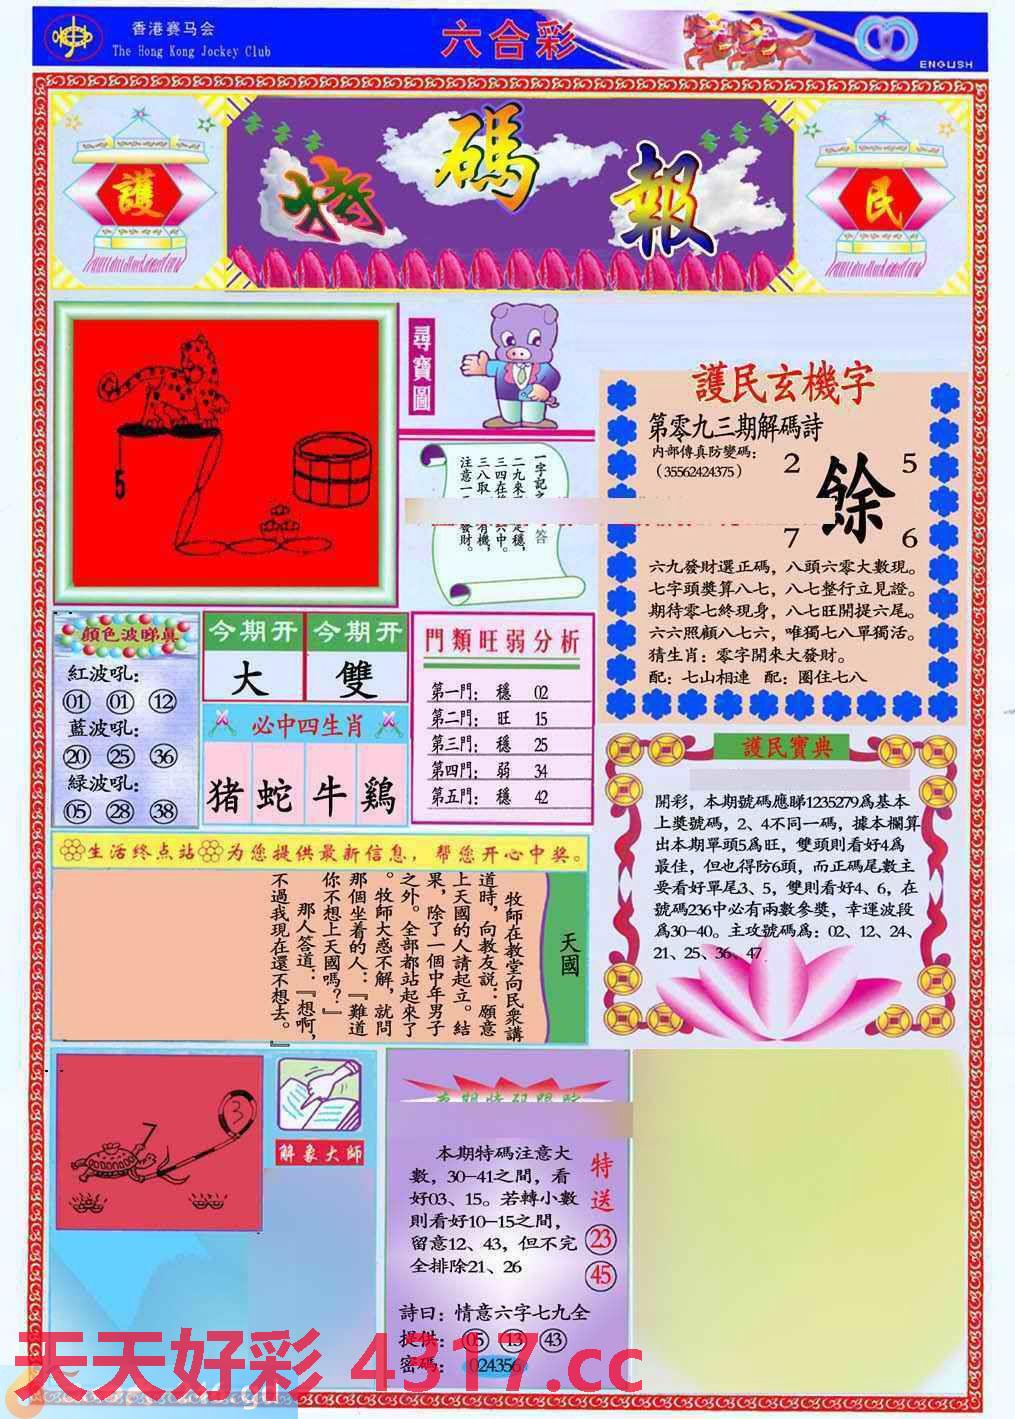 香港赛马会
The Hong Kong Jockey Club
六合彩
ENGLISH
護
特碼報
民
5
尋寶圖
一字記之
答
二九來
定穩，
三四在
六中。
三八取
有機，
注意一
發財。
護民玄機字
第零九三期解碼詩
内部傳真防變碼：
（35562424375）
2 5
餘
7 6
六九發財選正碼，八頭六零大數現。
七字頭獎算八七，八七整行立見證。
期待零七終現身，八七旺開提六尾。
六六照顧八七六，唯獨七八單獨活。
猜生肖：零字開來大發財。
配：七山相連 配：圈住七八
顏色波睇真
紅波吼：
01 01 12
藍波吼：
20 25 36
綠波吼：
05 28 38
今期开 今期开
大 雙
必中四生肖
猪 蛇 牛 鷄
門類旺弱分析
第一門： 穩 02
第二門： 旺 15
第三門： 穩 25
第四門： 弱 34
第五門： 穩 42
護民寶典
開彩，本期號碼應睇1235279爲基本
上獎號碼，2、4不同一碼，據本欄算
出本期單頭5爲旺，雙頭則看好4爲
最佳，但也得防6頭，而正碼尾數主
要看好單尾3、5，雙則看好4、6，在
號碼236中必有兩數參獎，幸運波段
爲30—40。主攻號碼爲：02、12、24、
21、25、36、47
生活终点站 为您提供最新信息，帮您开心中奖。
天國
牧師在教堂向民衆講
道時，向教友説：願意
上天國的人請起立。結
果，除了一個中年男子
之外。全部都站起來了
。牧師大惑不解，就問
那個坐着的人：『難道
你不想上天國嗎？』
那人答道：『想啊，
不過我現在還不想去。』
7
3
解象大師
本期特碼注意大
數，30—41之間，看
好03、15。若轉小數
則看好10—15之間，
留意12、43，但不完
全排除21、26
特送
23
45
詩曰：情意六字七九全
提供：05 13 43
密碼：024356
天天好彩 4317.cc